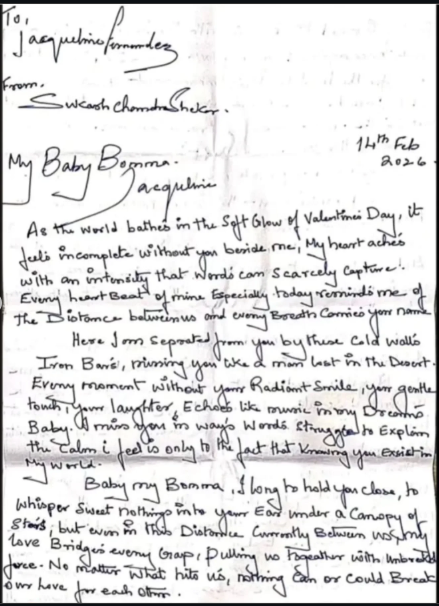 To,
Jacqueline Fernandez
From.
Sukash Chandra Shekar.
14th Feb
2026.
My Baby Bomma.
Jacqueline
As the World bathes in the Soft Glow of Valentines Day, it
feels incomplete without you beside me, My heart aches
with an intensity that words can Scarcely Capture.
Every heart Beat of mine Especially today reminds me of
The Distance between us and every Breath Carries your name
Here I am seprated from you by these Cold walls
Iron Bars, missing you like a man lost in the Desert.
Every moment without your Radiant Smile, your gentle
touch, your laughter, Echoes like music in my Dreams
Baby. I miss you in ways Words Struggle to Explain
the Calm i feel is only to the fact that Knowing you Exsist in
My World.
Baby my Bomma, I long to hold you close, to
Whisper Sweet nothings into your Ear under a Canopy of
Stars, but even in this Distance Currently Between us, my
Love Bridges every Gap, Pulling us Together with Unbreakable
force. No matter What hits us, nothing Can or Could Break
Our Love for each other.